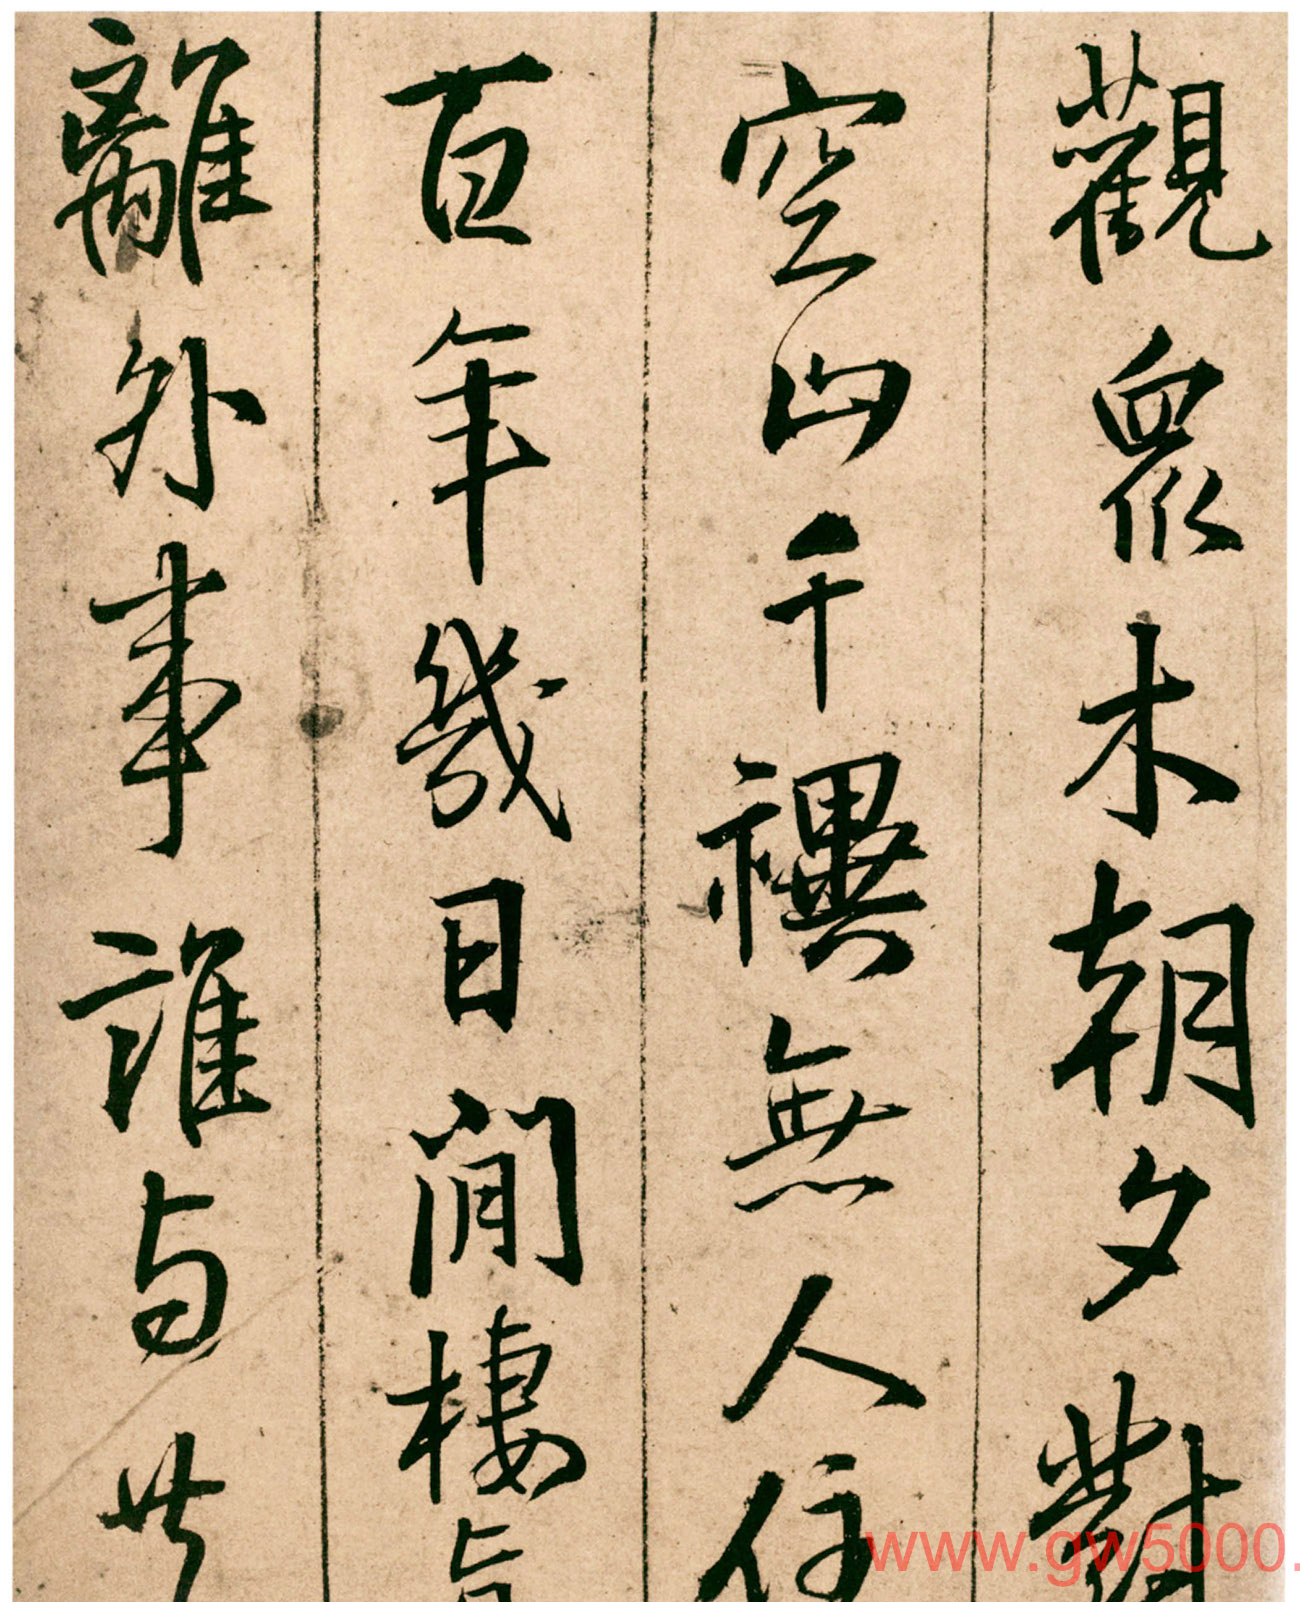 觀眾木朝夕對
空山千禩無人住
百年幾日閒棲
離外事誰与共
www.gw5000.